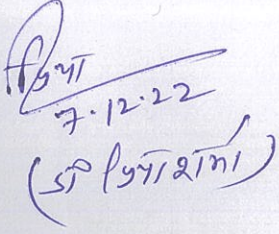 प्रिया
7.12.22
(डॉ प्रिया शर्मा)